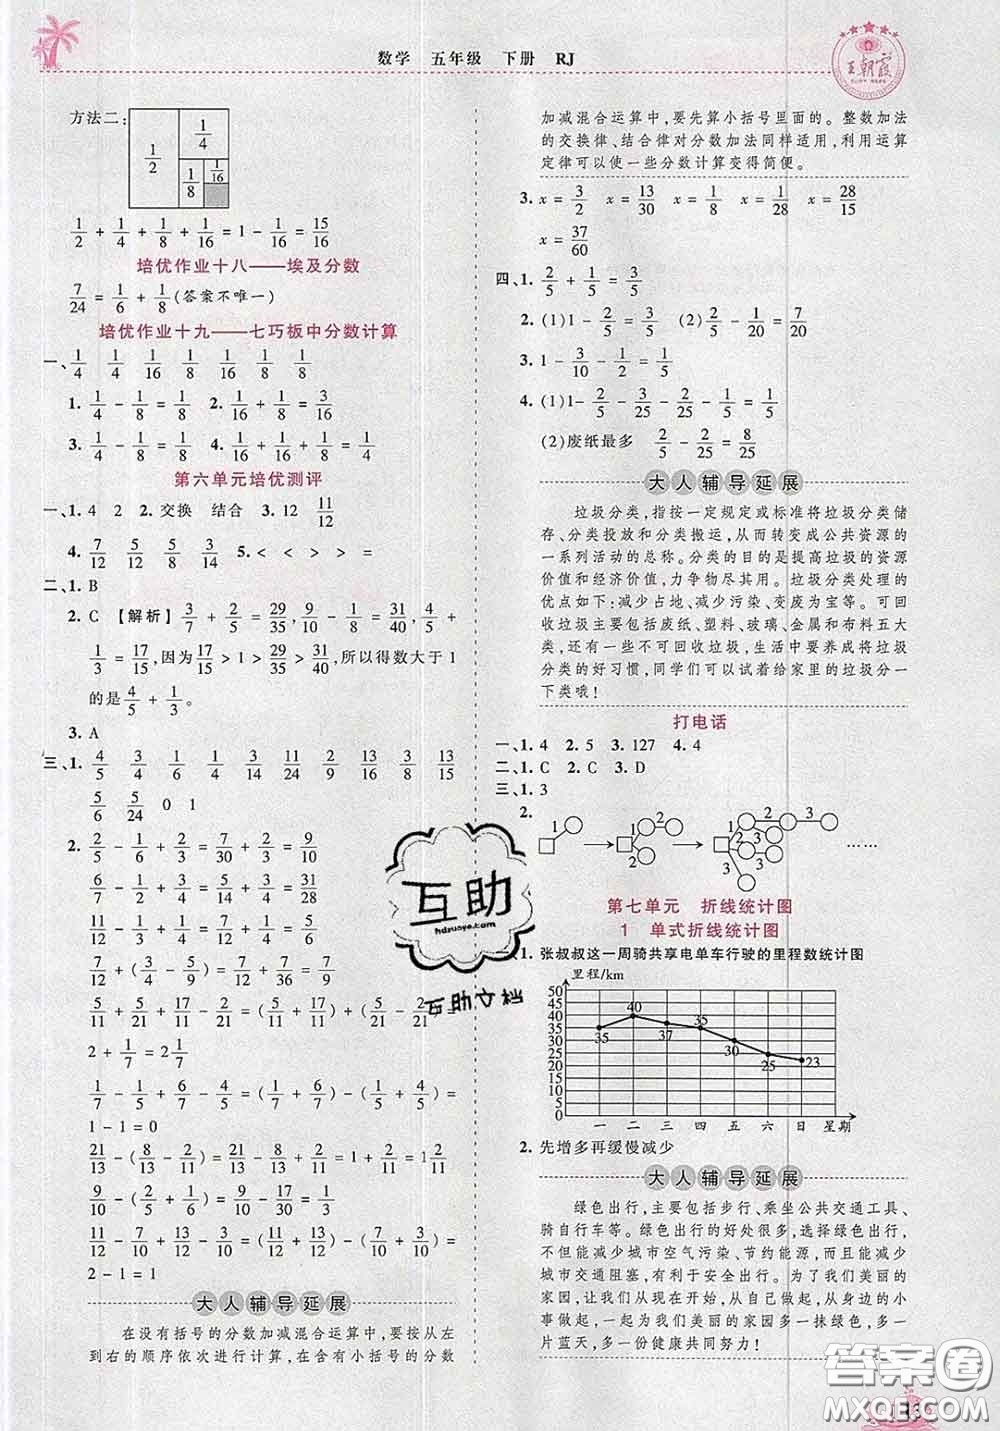 数学 五年级 下册 RJ
王朝霞
方法二:
1/2 1/4 1/8 1/16
1/2 + 1/4 + 1/8 + 1/16 = 1 - 1/16 = 15/16
培优作业十八——埃及分数
7/24 = 1/6 + 1/8 (答案不唯一)
培优作业十九——七巧板中分数计算
一、1/4 1/4 1/16 1/8 1/16 1/8 1/8
1. 1/4 - 1/8 = 1/8 2. 1/16 + 1/8 = 3/16
3. 1/4 - 1/8 = 1/8 4. 1/16 + 1/16 + 1/8 = 1/4
第六单元培优测评
一、1. 4 2 2. 交换 结合 3. 12 11/12
4. 7/12 5/12 5/8 1/8 5. < < > > =
二、1. B
2. C 【解析】3/7 + 2/5 = 29/35, 9/10 - 1/8 = 31/40, 4/5 +
1/3 = 17/15, 因为 17/15 > 1 > 29/35 > 31/40, 所以得数大于 1
的是 4/5 + 1/3。
3. A
三、1. 4/5 3/4 1/6 1/4 3/14 11/24 2/9 13/16 3/8 13/15
5/6 5/24 0 1
2. 2/5 - 1/6 + 2/3 = 7/30 + 2/3 = 9/10
6/7 - 4/9 + 1/3 = 26/63 + 1/3 = 47/63
11/12 - 1/4 - 1/3 = 2/3 - 1/3 = 1/3
5/11 + 5/21 + 17/11 + 19/21 = (5/11 + 17/11) + (5/21 + 19/21) =
2 + 1/7 = 2 1/7
1/7 - 1/5 + 6/7 - 4/5 = (1/7 + 6/7) - (1/5 + 4/5) =
1 - 1 = 0
21/13 - (8/13 - 2/11) = 21/13 - 8/13 + 2/11 = 1 + 2/11 = 1 2/11
9/10 - (1/6 + 1/5) = 9/10 - 11/30 = 8/15
11/12 - 7/10 + 13/12 - 3/10 = (11/12 + 13/12) - (7/10 + 3/10) =
2 - 1 = 1
大人辅导延展
在没有括号的分数加减混合运算中,要按从左
到右的顺序依次进行计算,在含有小括号的分数
加减混合运算中,要先算小括号里面的。整数加法
的交换律、结合律对分数加法同样适用,利用运算
定律可以使一些分数计算变得简便。
3. x = 3/2 x = 13/30 x = 1/8 x = 1/28 x = 28/15
x = 37/60
四、1. 2/5 + 1/5 = 3/5
2. (1) 1 - 2/5 = 3/5 (2) 2/5 - 1/20 = 7/20
3. 1 - 3/10 - 1/2 = 1/5
4. (1) 1 - 2/5 - 3/25 - 2/25 - 1/5 = 1/5
(2) 废纸最多 2/5 - 2/25 = 8/25
大人辅导延展
垃圾分类,指按一定规定或标准将垃圾分类储
存、分类投放和分类搬运,从而转变成公共资源的
一系列活动的总称。分类的目的是提高垃圾的资源
价值和经济价值,力争物尽其用。垃圾分类处理的
优点如下:减少占地、减少污染、变废为宝等。可回
收垃圾主要包括废纸、塑料、玻璃、金属和布料五大
类,还有一些不可回收垃圾,生活中要养成将垃圾
分类的好习惯,同学们可以试着给家里的垃圾分一
下类哦!
打电话
一、1. 4 2. 5 3. 127 4. 4
二、1. C 2. C 3. D
三、1. 3
2. 1 1 2 2 1 2 2 3 3 3 3 ……
第七单元 折线统计图
1 单式折线统计图
1. 张叔叔这一周骑共享电单车行驶的里程数统计图
里程/km
50
45
40
35
30
25
20
15
10
5
0
35 40 37 35 30 25 23
一 二 三 四 五 六 日 星期
2. 先增多再缓慢减少
大人辅导延展
绿色出行,主要包括步行、乘坐公共交通工具、
骑自行车等。绿色出行的好处很多,选择绿色出行,
不但能减少城市空气污染、节约能源,而且能减少
城市交通阻塞,有利于安全出行。为了我们美丽的
家园,让我们从现在开始,从自己做起,从身边的小
事做起,一起为我们美丽的家园多一抹绿色,多一
片蓝天,多一份健康共同努力!
互助
hdzuoye.com
互助文档
答案圈
MXQE.COM